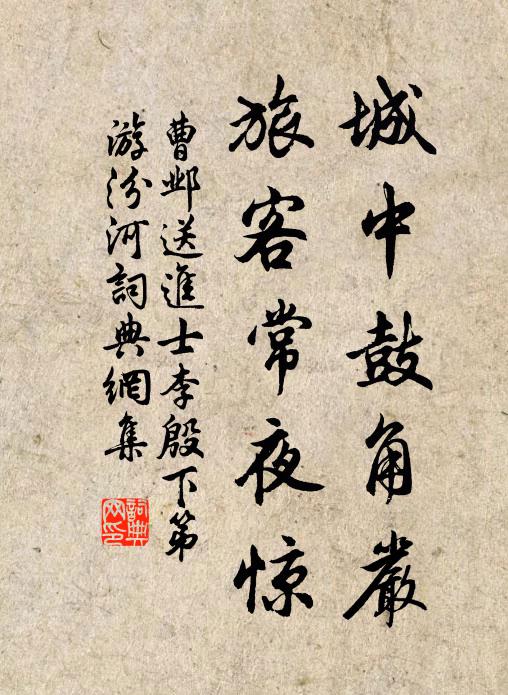 城中鼓角嚴
旅客常夜惊
曹邺送進士李殷下第
游汾河詞典網集
詞典
网印